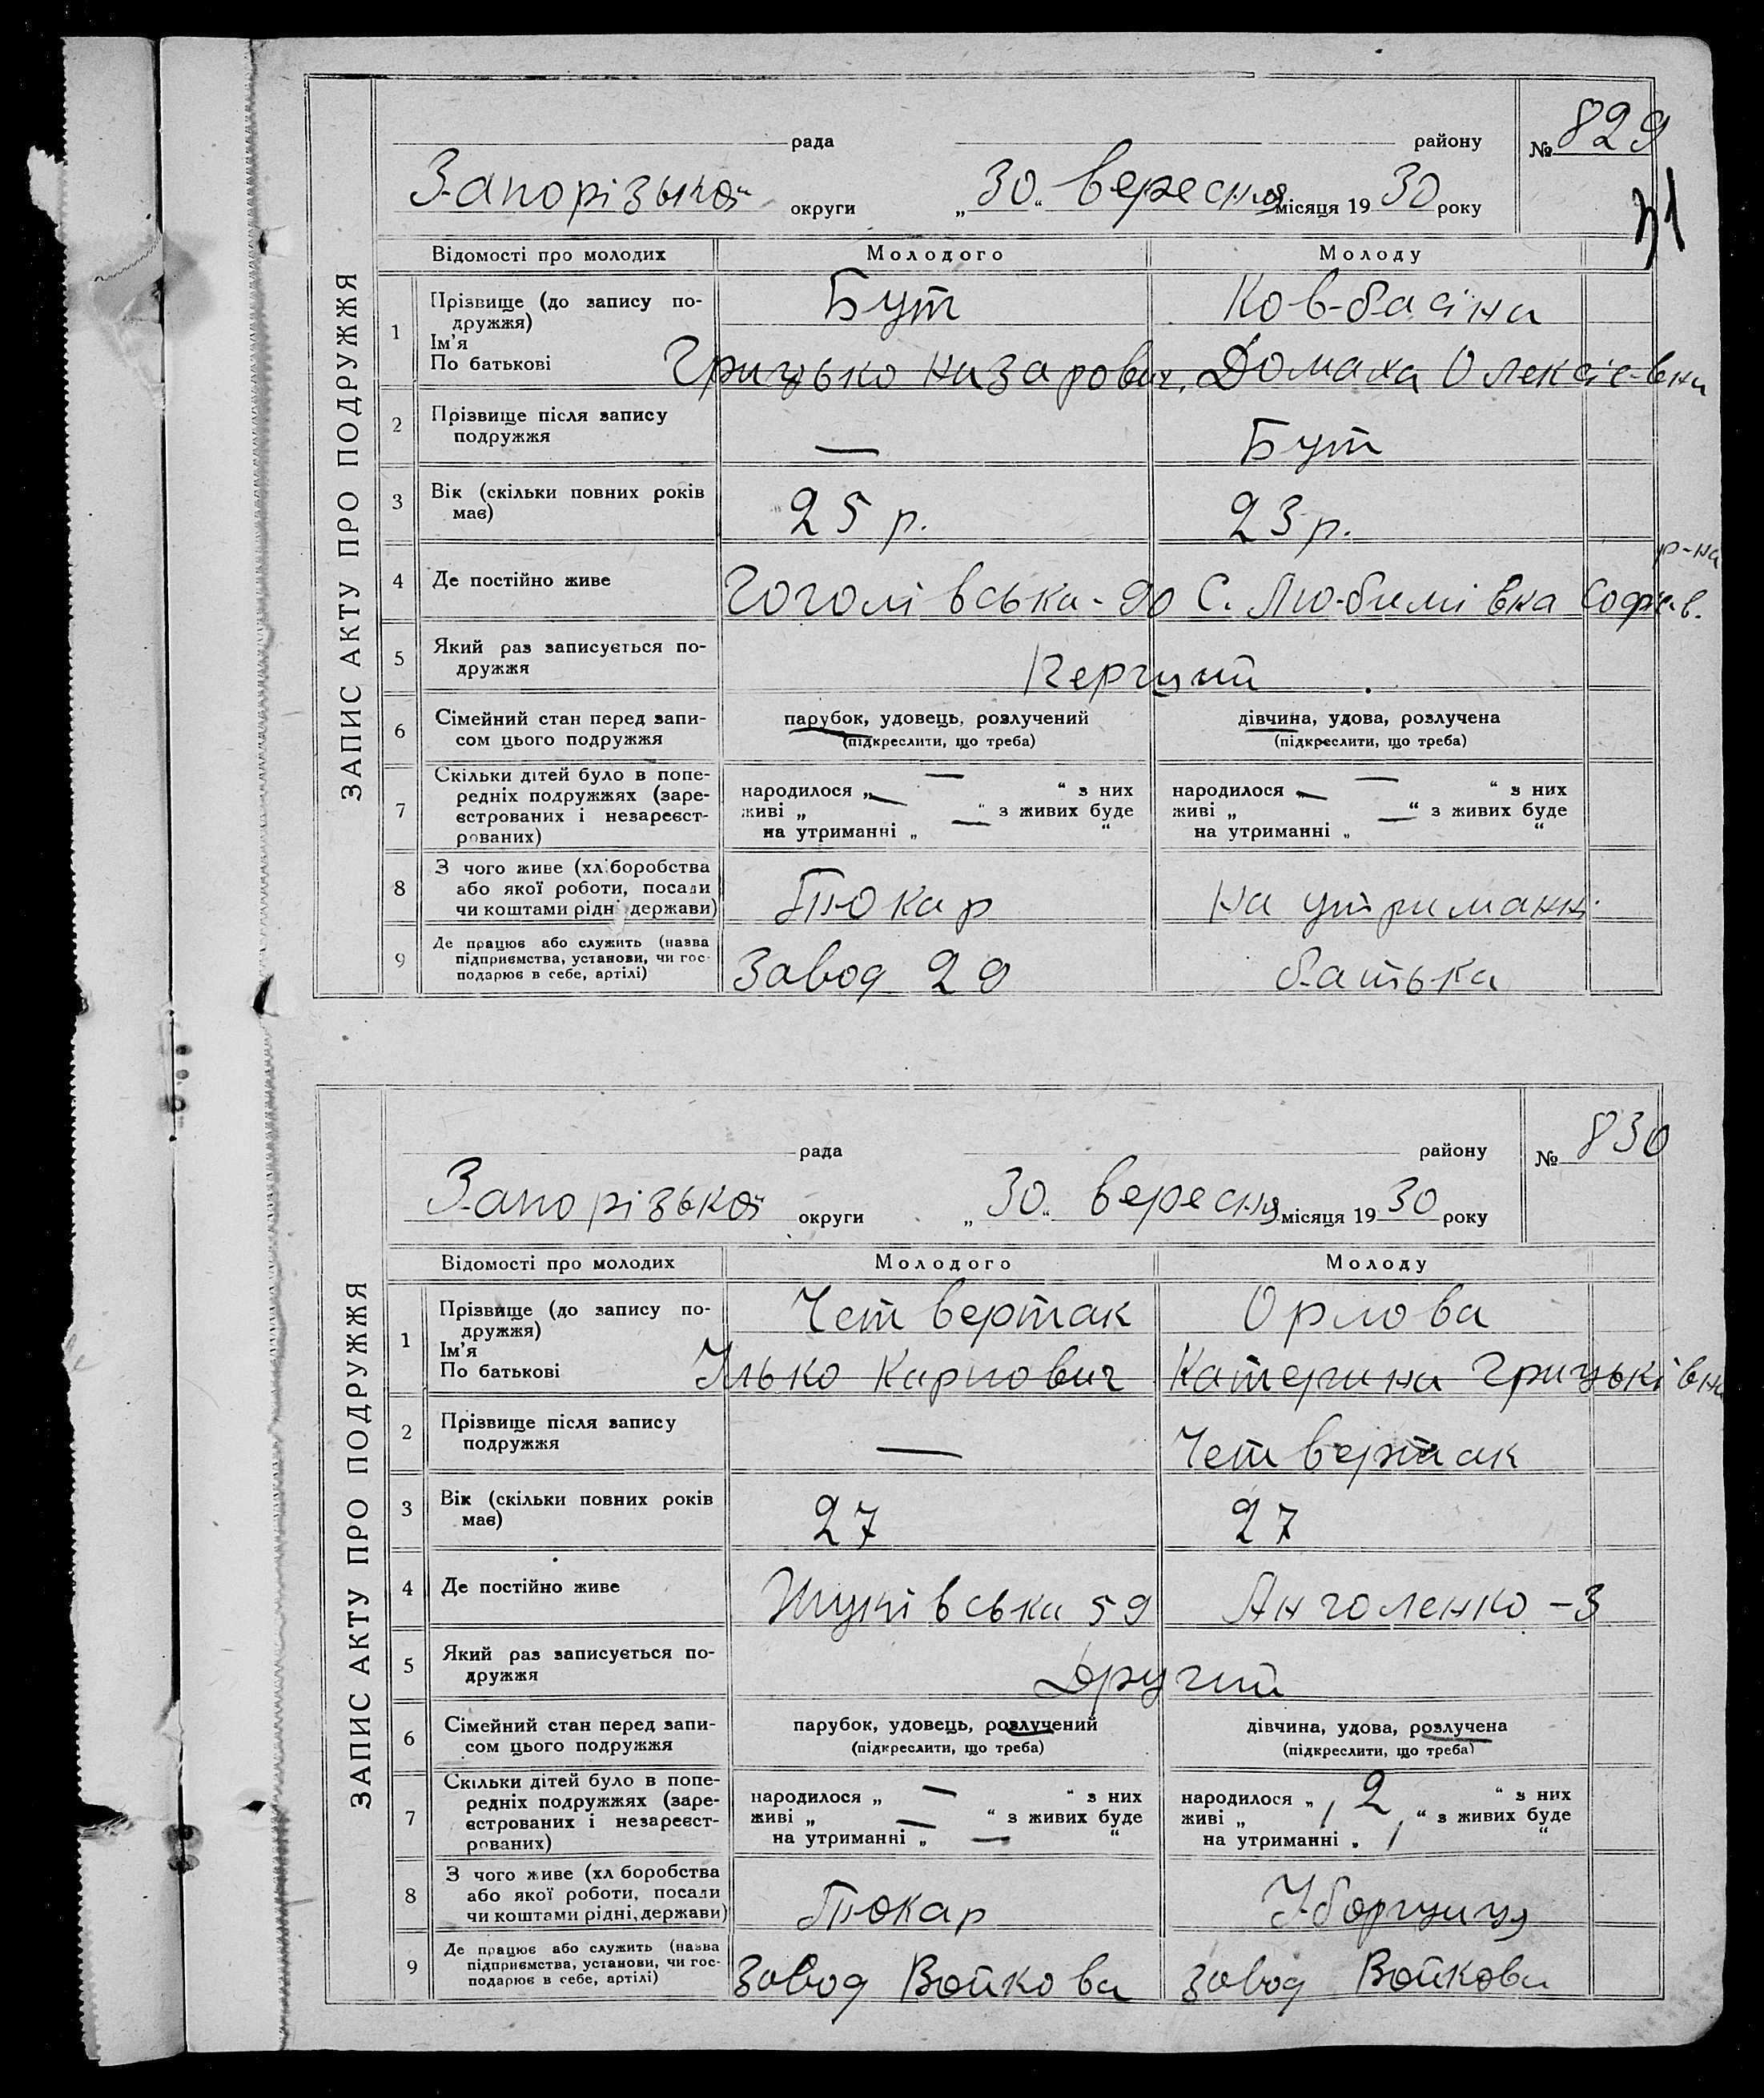 ЗАПИС АКТУ ПРО ПОДРУЖЖЯ
рада району № 829
Запорізької округи „30“ вересня місяця 1930 року
31
Відомості про молодих Молодого Молоду
1 Прізвище (до запису подружжя) Бут Ковбасіна
Ім'я
По батькові Грицько Назарович. Домаха Олексієвна
2 Прізвище після запису подружжя — Бут
3 Вік (скільки повних років має) 25 р. 23 р.
4 Де постійно живе Гоголівська-90 С. Любимівка Софіев. р-на
5 Який раз записується подружжя Перший
6 Сімейний стан перед записом цього подружжя парубок, удовець, розлучений дівчина, удова, розлучена
(підкреслити, що треба) (підкреслити, що треба)
7 Скільки дітей було в попередніх подружжях (зареєстрованих і незареєстрованих)
народилося „ — “ з них народилося „ — “ з них
живі „ — “ з живих буде живі „ — “ з живих буде
на утриманні „ — “ на утриманні „ — “
8 З чого живе (хліборобства або якої роботи, посади чи коштами рідні, держави) Токар На утриманні
9 Де працює або служить (назва підприємства, установи, чи господарює в себе, артілі) Завод 29 батька
ЗАПИС АКТУ ПРО ПОДРУЖЖЯ
рада району № 830
Запорізької округи „30“ вересня місяця 1930 року
Відомості про молодих Молодого Молоду
1 Прізвище (до запису подружжя) Четвертак Орлова
Ім'я
По батькові Ілько Карпович Катерина Грицьківна
2 Прізвище після запису подружжя — Четвертак
3 Вік (скільки повних років має) 27 27
4 Де постійно живе 59 Анголенко-3
5 Який раз записується подружжя Другий
6 Сімейний стан перед записом цього подружжя парубок, удовець, розлучений дівчина, удова, розлучена
(підкреслити, що треба) (підкреслити, що треба)
7 Скільки дітей було в попередніх подружжях (зареєстрованих і незареєстрованих)
народилося „ — “ з них народилося „ 2 “ з них
живі „ — “ з живих буде живі „ 1 “ з живих буде
на утриманні „ — “ на утриманні „ 1 “
8 З чого живе (хліборобства або якої роботи, посади чи коштами рідні, держави) Токар Уборщиця
9 Де працює або служить (назва підприємства, установи, чи господарює в себе, артілі) Завод Войкова Завод Войкова